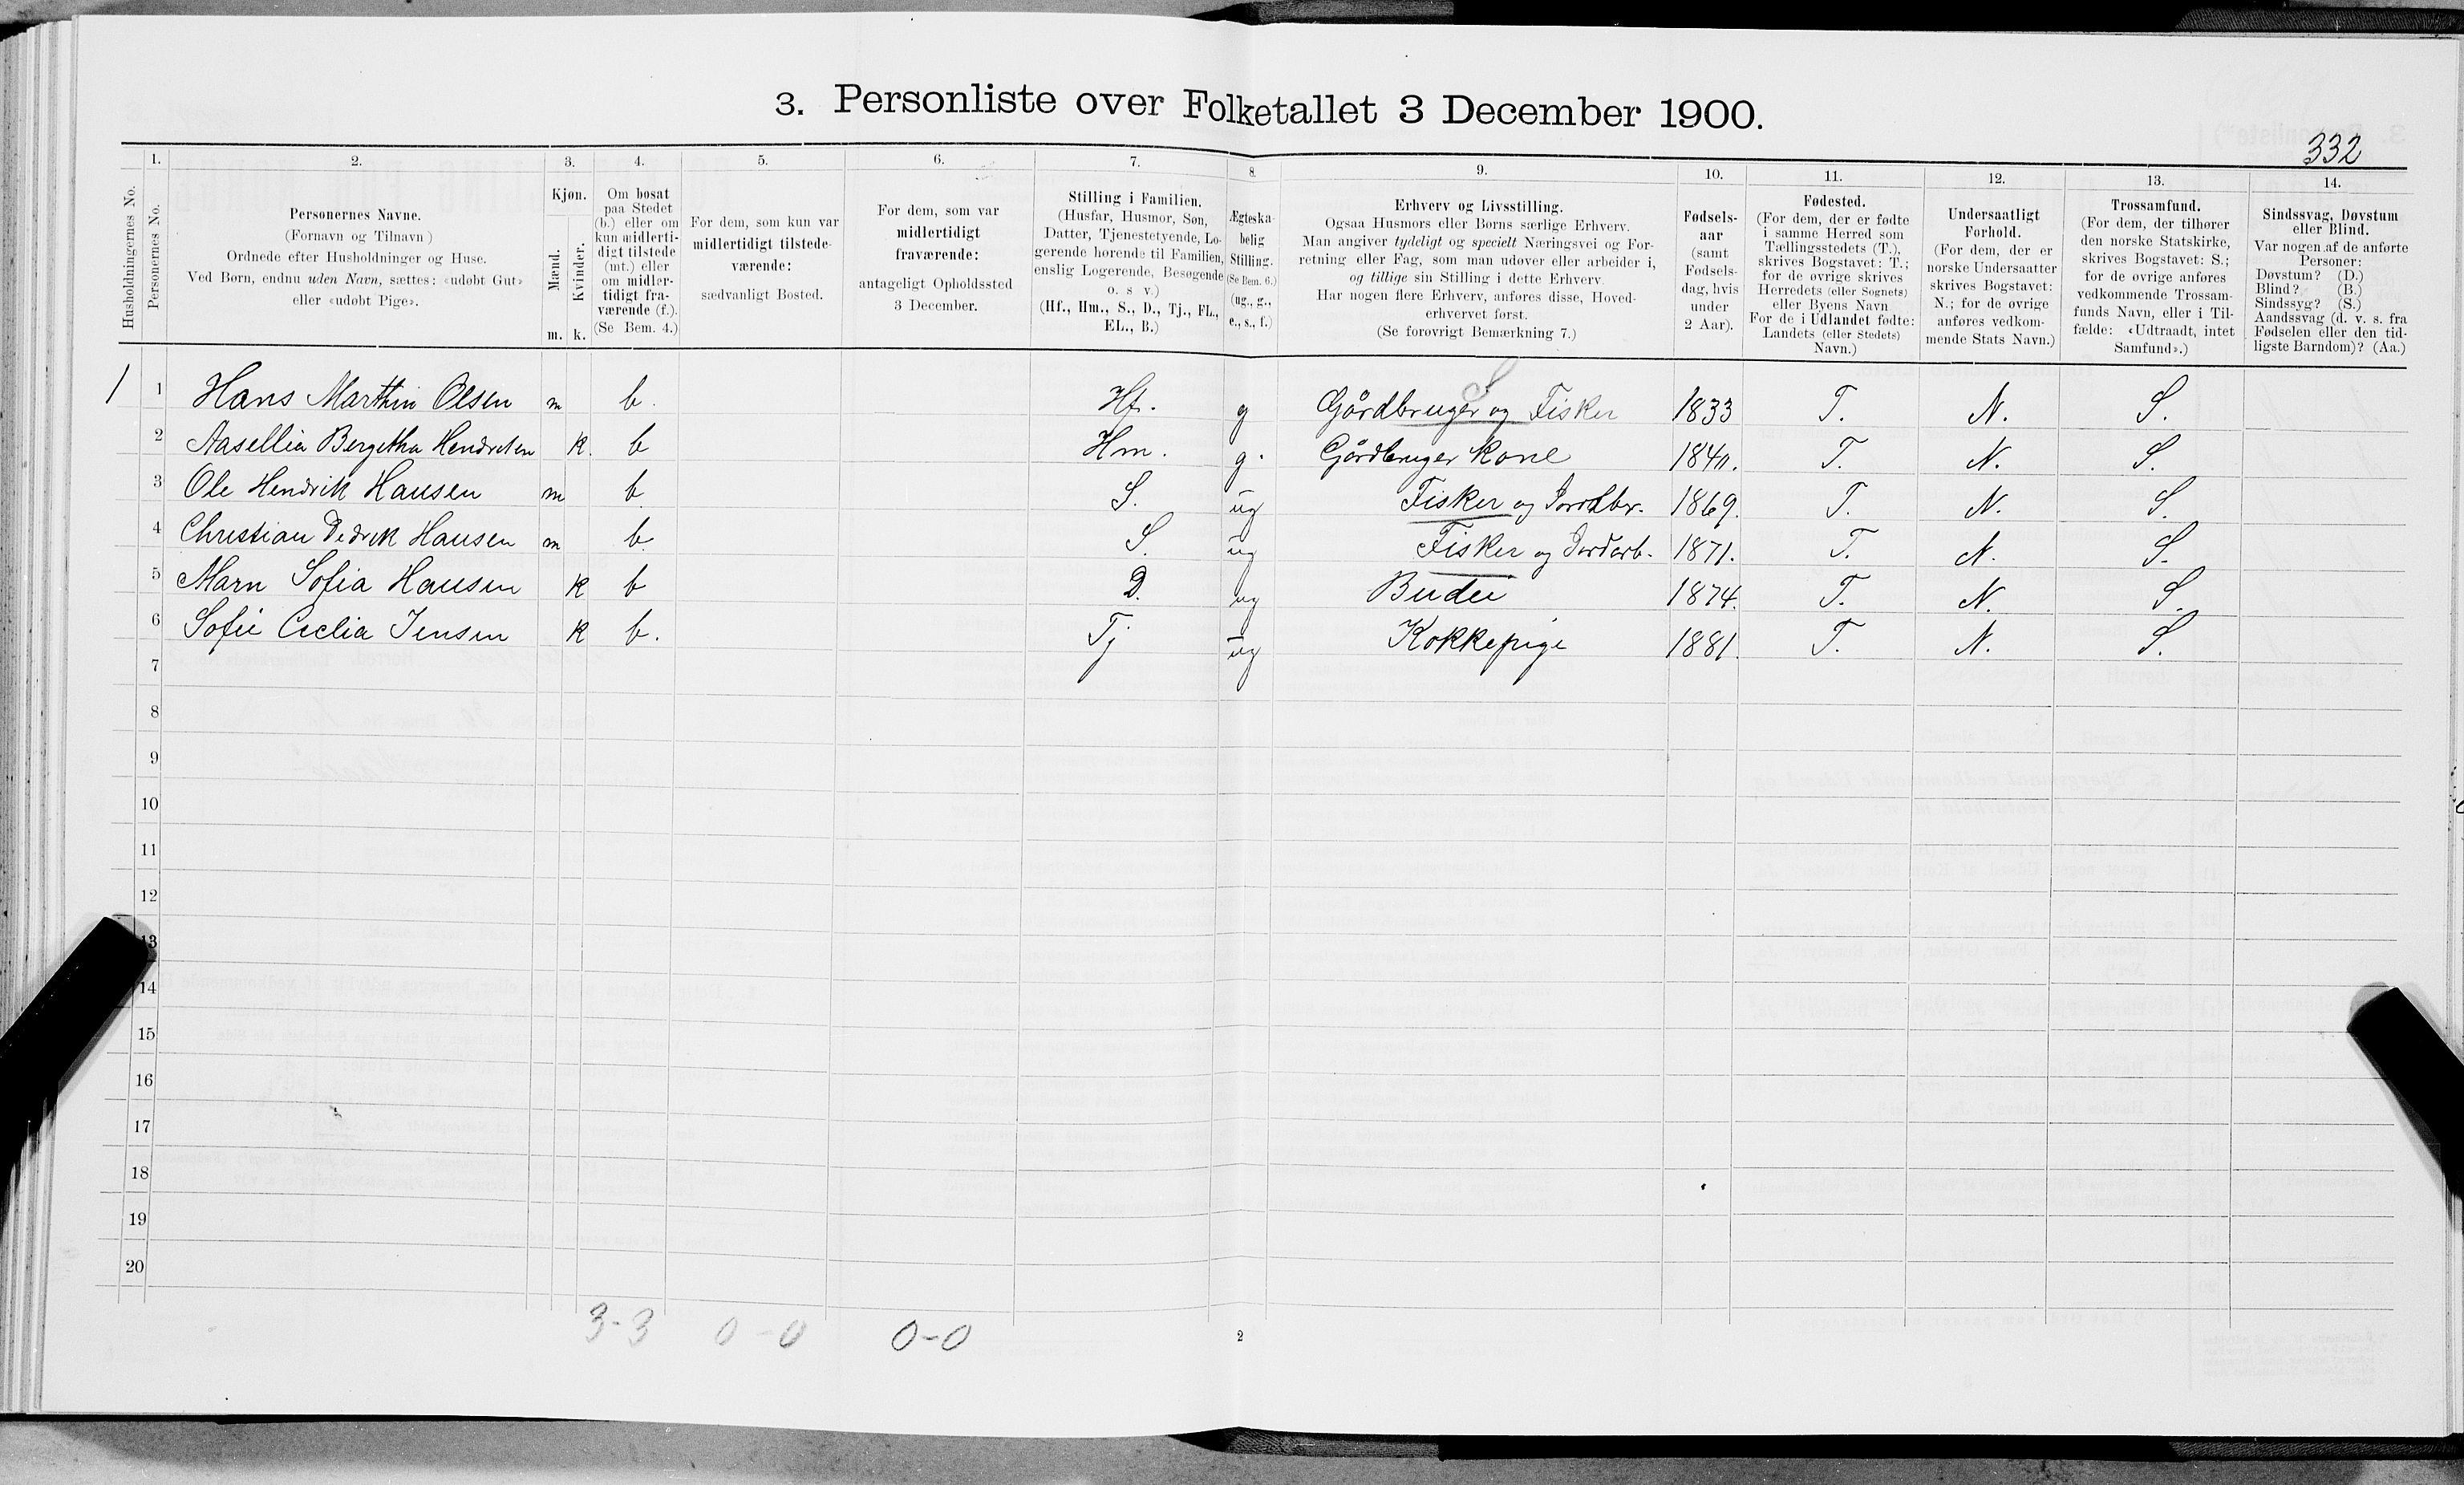 3. Personliste over Folketallet 3 December 1900.
332
1. 2. 3. 4. 5. 6. 7. 8. 9. 10. 11. 12. 13. 14.
Husholdningernes No.
Personernes No.
Personernes Navne.
(Fornavn og Tilnavn)
Ordnede efter Husholdninger og Huse.
Ved Børn, endnu uden Navn, sættes: «udøbt Gut»
eller «udøbt Pige».
Kjøn.
Mænd.
Kvinder.
m. k.
Om bosat
paa Stedet
(b.) eller om
kun midlerti-
digt tilstede
(mt.) eller
om midler-
tidigt fra-
værende (f.).
(Se Bem. 4.)
For dem, som kun var
midlertidigt tilstede-
værende:
sædvanligt Bosted.
For dem, som var
midlertidigt
fraværende:
antageligt Opholdssted
3 December.
Stilling i Familien.
(Husfar, Husmor, Søn,
Datter, Tjenestetyende, Lo-
gerende hørende til Familien,
enslig Logerende, Besøgende
o. s v.)
(Hf., Hm., S., D., Tj., FL.,
EL., B.)
Ægteska-
belig
Stilling.
(Se Bem. 6.)
(ug., g.,
e., s., f.)
Erhverv og Livsstilling.
Ogsaa Husmors eller Børns særlige Erhverv.
Man angiver tydeligt og specielt Næringsvei og For-
retning eller Fag, som man udøver eller arbeider i,
og tillige sin Stilling i dette Erhverv.
Har nogen flere Erhverv, anføres disse, Hoved-
erhvervet først.
(Se forøvrigt Bemærkning 7.)
Fødsels-
aar
(samt
Fødsels-
dag, hvis
under
2 Aar).
Fødested.
(For dem, der er fødte
i samme Herred som
Tællingsstedets (T.),
skrives Bogstavet: T.;
for de øvrige skrives
Herredets (eller Sognets)
eller Byens Navn
For de i Udlandet fødte:
Landets (eller Stedets)
Navn.)
Undersaatligt
Forhold.
(For dem, der er
norske Undersaatter
skrives Bogstavet:
N.; for de øvrige
anføres vedkom-
mende Stats Navn.)
Trossamfund.
(For dem, der tilhører
den norske Statskirke,
skrives Bogstavet: S.;
for de øvrige anføres
vedkommende Trossam-
funds Navn, eller i Til-
fælde: «Udtraadt, intet
Samfund».)
Sindssvag, Døvstum
eller Blind.
Var nogen af de anførte
Personer:
Døvstum? (D.)
Blind? (B.)
Sindssyg? (S.)
Aandssvag (d. v. s. fra
Fødselen eller den tid-
ligste Barndom)? (Aa.)
S
1 1 Hans Marthin Olsen m b. Hf. g Gårdbruger og Fisker 1833 T. N. S.
2 Bergetha k. b Hm. g. Gårdbruger Kone T. N. S.
3 Ole Hendrik Hansen m b S. ug Fisker og 1869. T. N. S.
4 Christian Hansen m b. S. ug Fisker og 1871. T. N. S.
5 Marn Sofia Hansen k b D. ug Budei 1874. T. N. S.
6 Sofie Cecilia Jensen k b. Tj ug Kokkepige 1881. T. N. S.
7
8
9
10
11
12
13
14
15
16
17
18
19
20
3-3 0-0 0-0
2